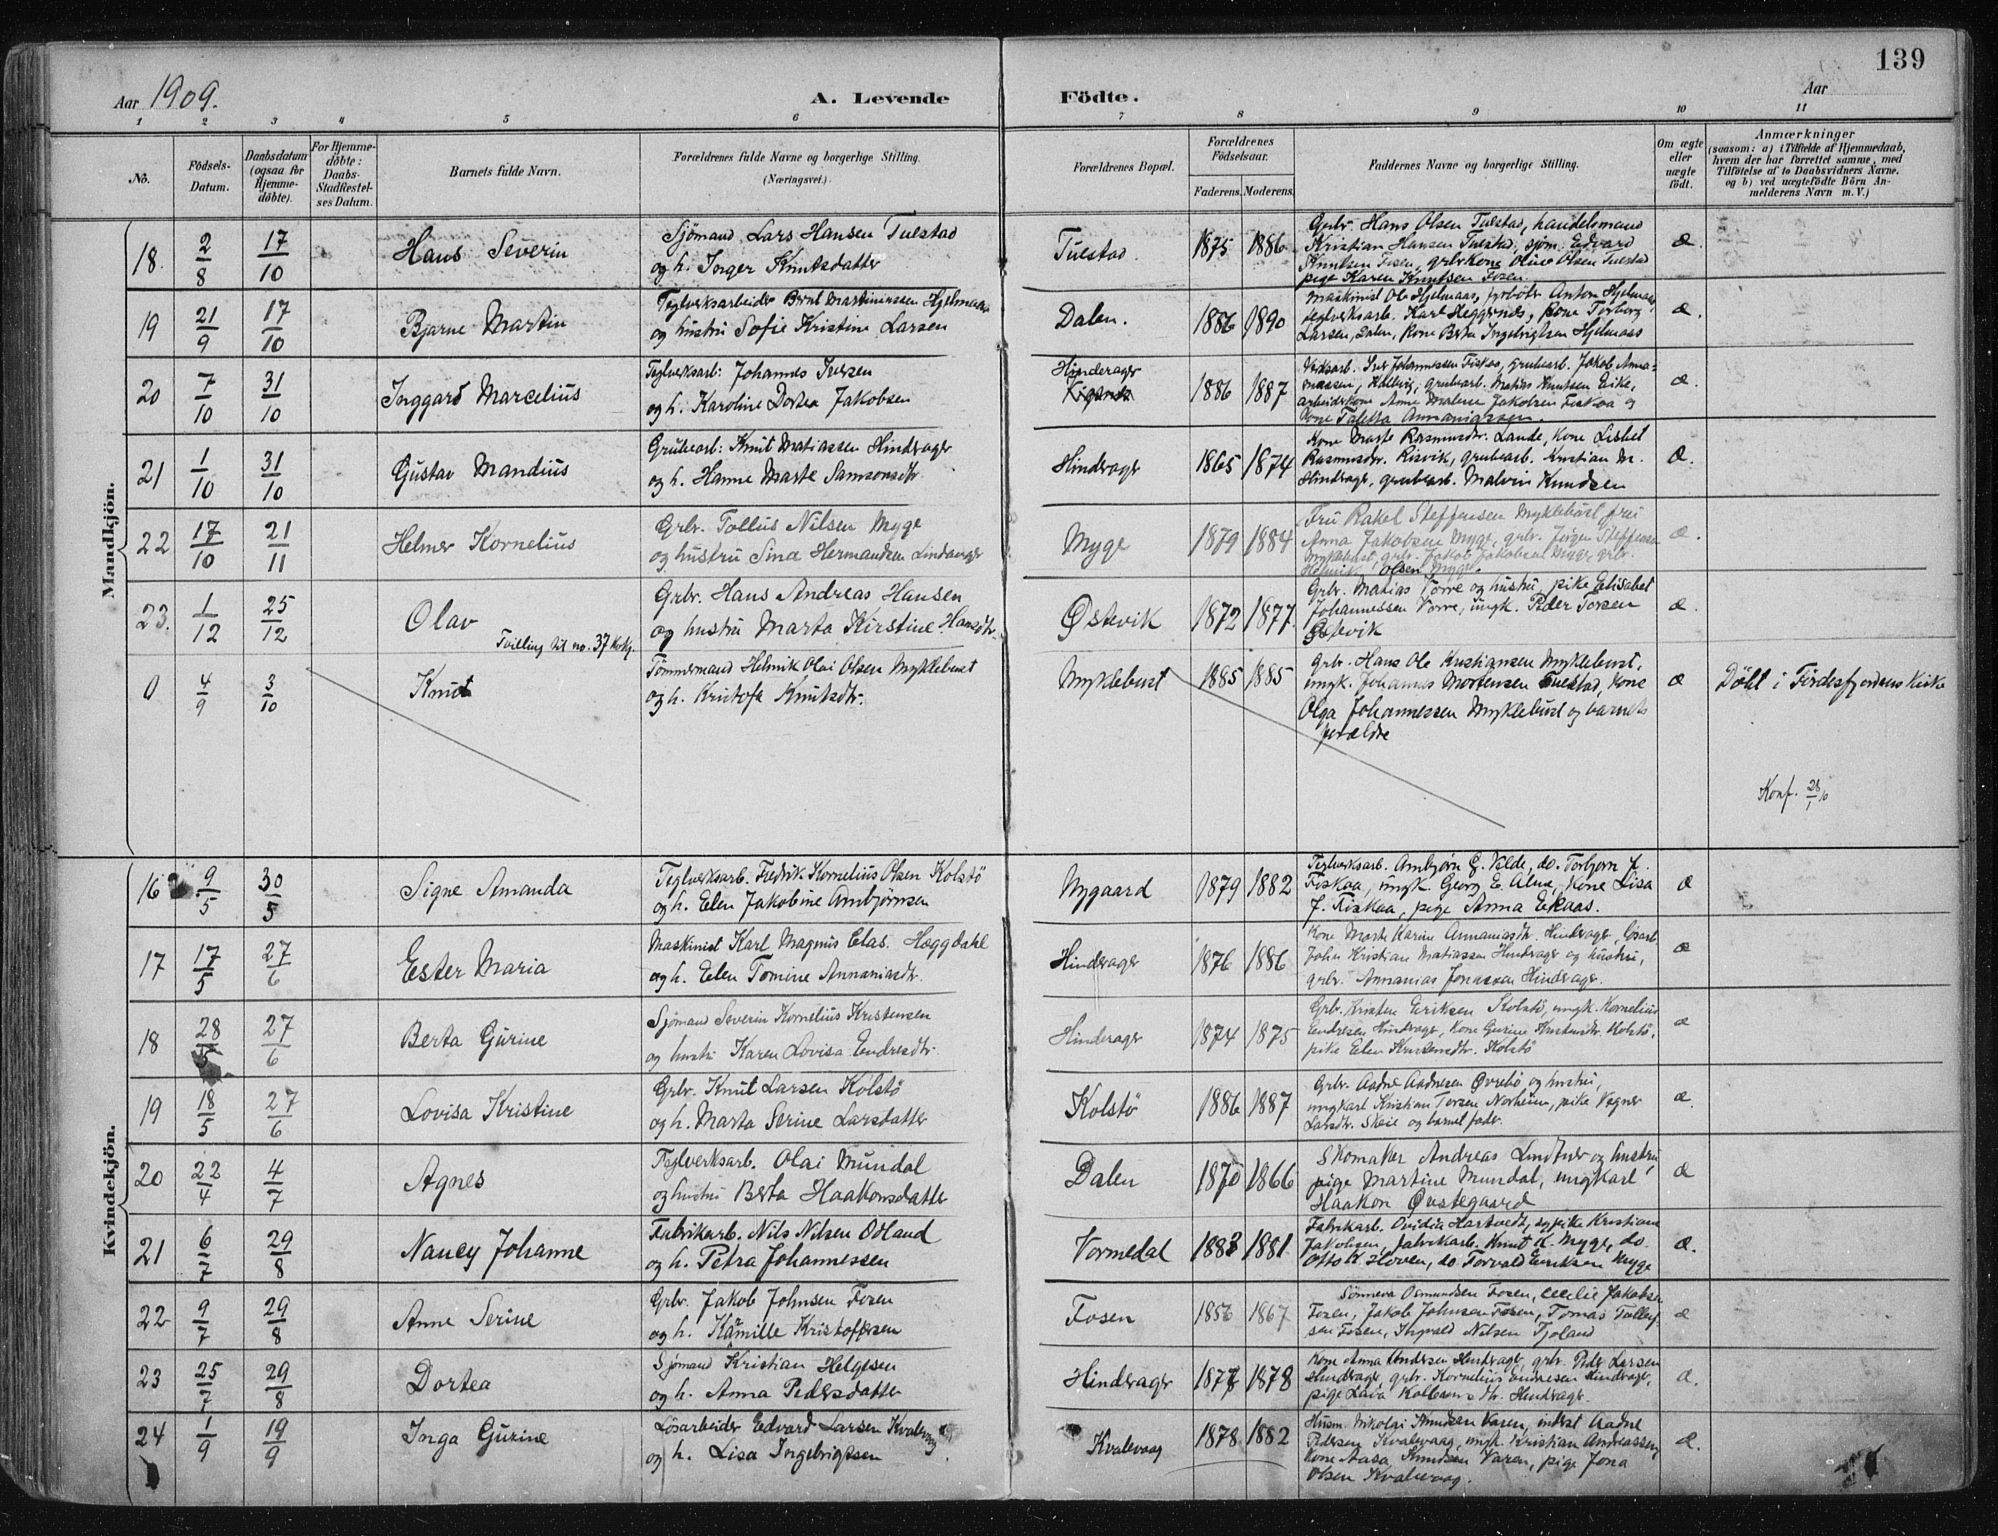 139
Aar 1909.
A. Levende Födte.
Aar
1 2 3 4 5 6 7 8 9 10 11
No.
Födsels-
Datum.
Daabsdatum
(ogsaa for
Hjemme-
döbte).
For Hjemme-
döbte:
Daabs-
Stadfæstel-
ses Datum.
Barnets fulde Navn.
Forældrenes fulde Navne og borgerlige Stilling.
(Næringsvei.)
Forældrenes Bopæl.
Forældrenes
Födselsaar.
Faderens. Moderens.
Faddernes Navne og borgerlige Stilling.
Om ægte
eller
uægte
födt.
Anmærkninger
(saasom: a) i Tilfælde af Hjemmedaab,
hvem der har forrettet samme, med
Tilföielse af to Daabsvidners Navne.
og b) ved uægtefödte Börn An-
melderens Navn m. V.)
Mandkjön.
18. 2/8 17/10 Hans Severin
Sjömand Lars Hansen Tuestad
og h. Inger Knutsdatter
Tuestad. 1875 1886
Grbr. Hans Olsen Tuestad, handelsmand
Kristian Hansen Tuestad, sjøm. Edvard
Knutsen Fosen, grbrkone Oline Olsen Tuestad
pige Karen Knutsen Fosen.
æ.
19 21/9 17/10 Bjarne Martin
Teglverksarbeider Bernt Martininssen Hjelmaas
og hustru Sofie Kristine Larsen
Dalen. 1886 1890
Maskinist Ole Hjelmaas, fyrbøter Anton Hjelmaas,
teglverksarb. Karl Heggernes, kone Torborg
Larsen, Dalen, kone Berta Ingebrigtsen Hjelmaas
æ.
20 7/10 31/10 Inggard Marcelius
Teglverksarb: Johannes Iversen
og h. Karoline Dortea Jakobsen
Hinderager
1886 1887
Verksarb. Iver Johannessen Fiskaa, grubearb. Jakob Anna-
niassen, grubearb. Matias Knutsen Eike,
arbeiderkone Anne Malene Jakobsen Fiskaa og
kone Taletta Annaniassen.
æ.
21 1/10 31/10 Gustav Mandius
Grubearb: Knut Matiassen Hinderager
og h. Hanne Marte Samsonsdtr
Hinderager 1865 1874
Kone Marte Rasmusdtr. Lande, kone Lisbet
Rasmusdtr. Risvik, grubearb. Kristian M.
Hinderager, grubearb. Malvin Knudsen
æ.
22 17/10 21/11 Helmer Kornelius
Grbr. Tollus Nilsen Myge
og hustru Sina Hermansen Lindanger
Myge 1879 1884
Fru Rakel Steffensen Myklebust, fru
Anna Jakobsen Myge, grbr. Jørgen Steffensen
Myklebust, grbr. Jakob Jakobsen Myge, grbr.
Henrik Olsen Myge.
æ.
23. 1/12 25/12 Olav
Tvilling til no. 37 kvkj.
Grbr. Hans Andreas Hansen
og hustru Marta Kirstine Hansdtr.
Østevik 1872 1877
Grbr. Matias Vorre og hustru, pike Elisabet
Johannessen Vorre, ungk. Peder Torsen
Østevik
æ.
0 4/9 3/10 Knut
Tømmermand Helmik Olai Olsen Myklebust
og h. Kristofa Knutsdtr.
Myklebust 1885 1885
Grbr. Hans Ole Kristiansen Myklebust,
ungk. Johannes Mortensen Tuestad, kone
Olga Johannessen Myklebust og barnets
forældre
æ Døbt i Førdesfjordens kirke
Konf.
Kvindekjön.
16 9/5 30/5 Signe Amanda
Teglverksarb. Fredrik Kornelius Olsen Kolstö
og h. Elen Jakobine Arnbjørnsen
Nygaard 1879 1882
Teglverksarb. Arnbjørn G. Velde, do. Torbjørn J.
Fiskaa, ungk Georg E. kone Lisa
J. Fiskaa, pige Anna Ekaas.
æ
17 17/5 27/6 Ester Maria
Maskinist Karl Magnus Elas. Hæggdahl
og h. Elen Tomine Annaniasdtr.
Hinderager 1876 1886
Kone Marte Karine Annaniasdtr. Hinderager, Gaarb.
John Kristian Matiassen Hinderager og hustru,
grbr. Annanias Jonassen Hinderager.
æ
18 28/5 27/6 Berta Gurine
Sjømand Severin Kornelius Kristensen
og hustr. Karen Lovisa Endresdtr.
Hinderager 1874 1875
Grbr. Kristen Eriksen Kolstö, ungk. Kornelius
Endresen Hinderager, kone Gurine Kristensdtr. Kolstö,
pike Elen Kristensdtr. Kolstö
æ
19 18/5 27/6 Lovisa Kristine
Grbr. Knut Larsen Kolstö
og h. Marta Serine Larsdatter
Kolstö 1886 1887
Grbr. Aadne Aadnesen Øvrebö og hustru,
ungkarl Kristian Torsen Norheim, pike
Larsdtr. Skeie og barnets fader.
æ.
20 22/4 4/7 Agnes
Teglverksarb. Olai Mundal
og hustru Berta Haakonsdatter
Dalen 1870 1866
Skomaker Andreas Lindtner og hustru,
pige Martine Mundal, ungkarl
Haakon Øvstegaard
æ
21 6/7 29/8 Nancy Johanne
Fabrikarb. Nils Nilsen Odland
og h. Petra Johannessen
Vormedal 1883 1881
Fabrikarb. Ovidia Hartvedt, sypike Kristiane
Jakobsen, fabrikarb. Knut K. Myge, do.
Otto K. Hoven, do. Torvald Eeriksen Myge
æ.
22 9/7 29/8 Anne Serine
Grbr. Jakob Johnsen Fosen
og h. Kamille Kristoffersen
Fosen 1856 1867
Sönneva Osmundsen Fosen, Cecilie Jakobsen
Fosen, Jakob Johnsen Fosen, Tomas Tollef-
sen Fosen, Ingvald Nilsen Tjoland
æ
23 25/7 29/8 Dortea
Sjömand Kristian Helgesen
og h. Anna Pedersdatter
Hinderager 1877 1878
Kone Anna Andersen Hinderager, grbr. Peder Larsen
Hinderager, grbr. Kornelius Endresen Hinderager,
pige Lava dtr. Hinderager
æ.
24 1/9 19/9 Inga Gurine
Lösarbeider Edvard Larsen Kvalevaag
og h. Lisa Ingebrigtsen
Kvalevaag 1878 1882
Husm. Nikolai Knudsen Varen, inderst Aadne
Pedersen Kvalevaag, ungk. Kristian Andreassen,
kone Aasa Knudsen Varen, pige Jona
Olsen Kvalevaag.
æ.